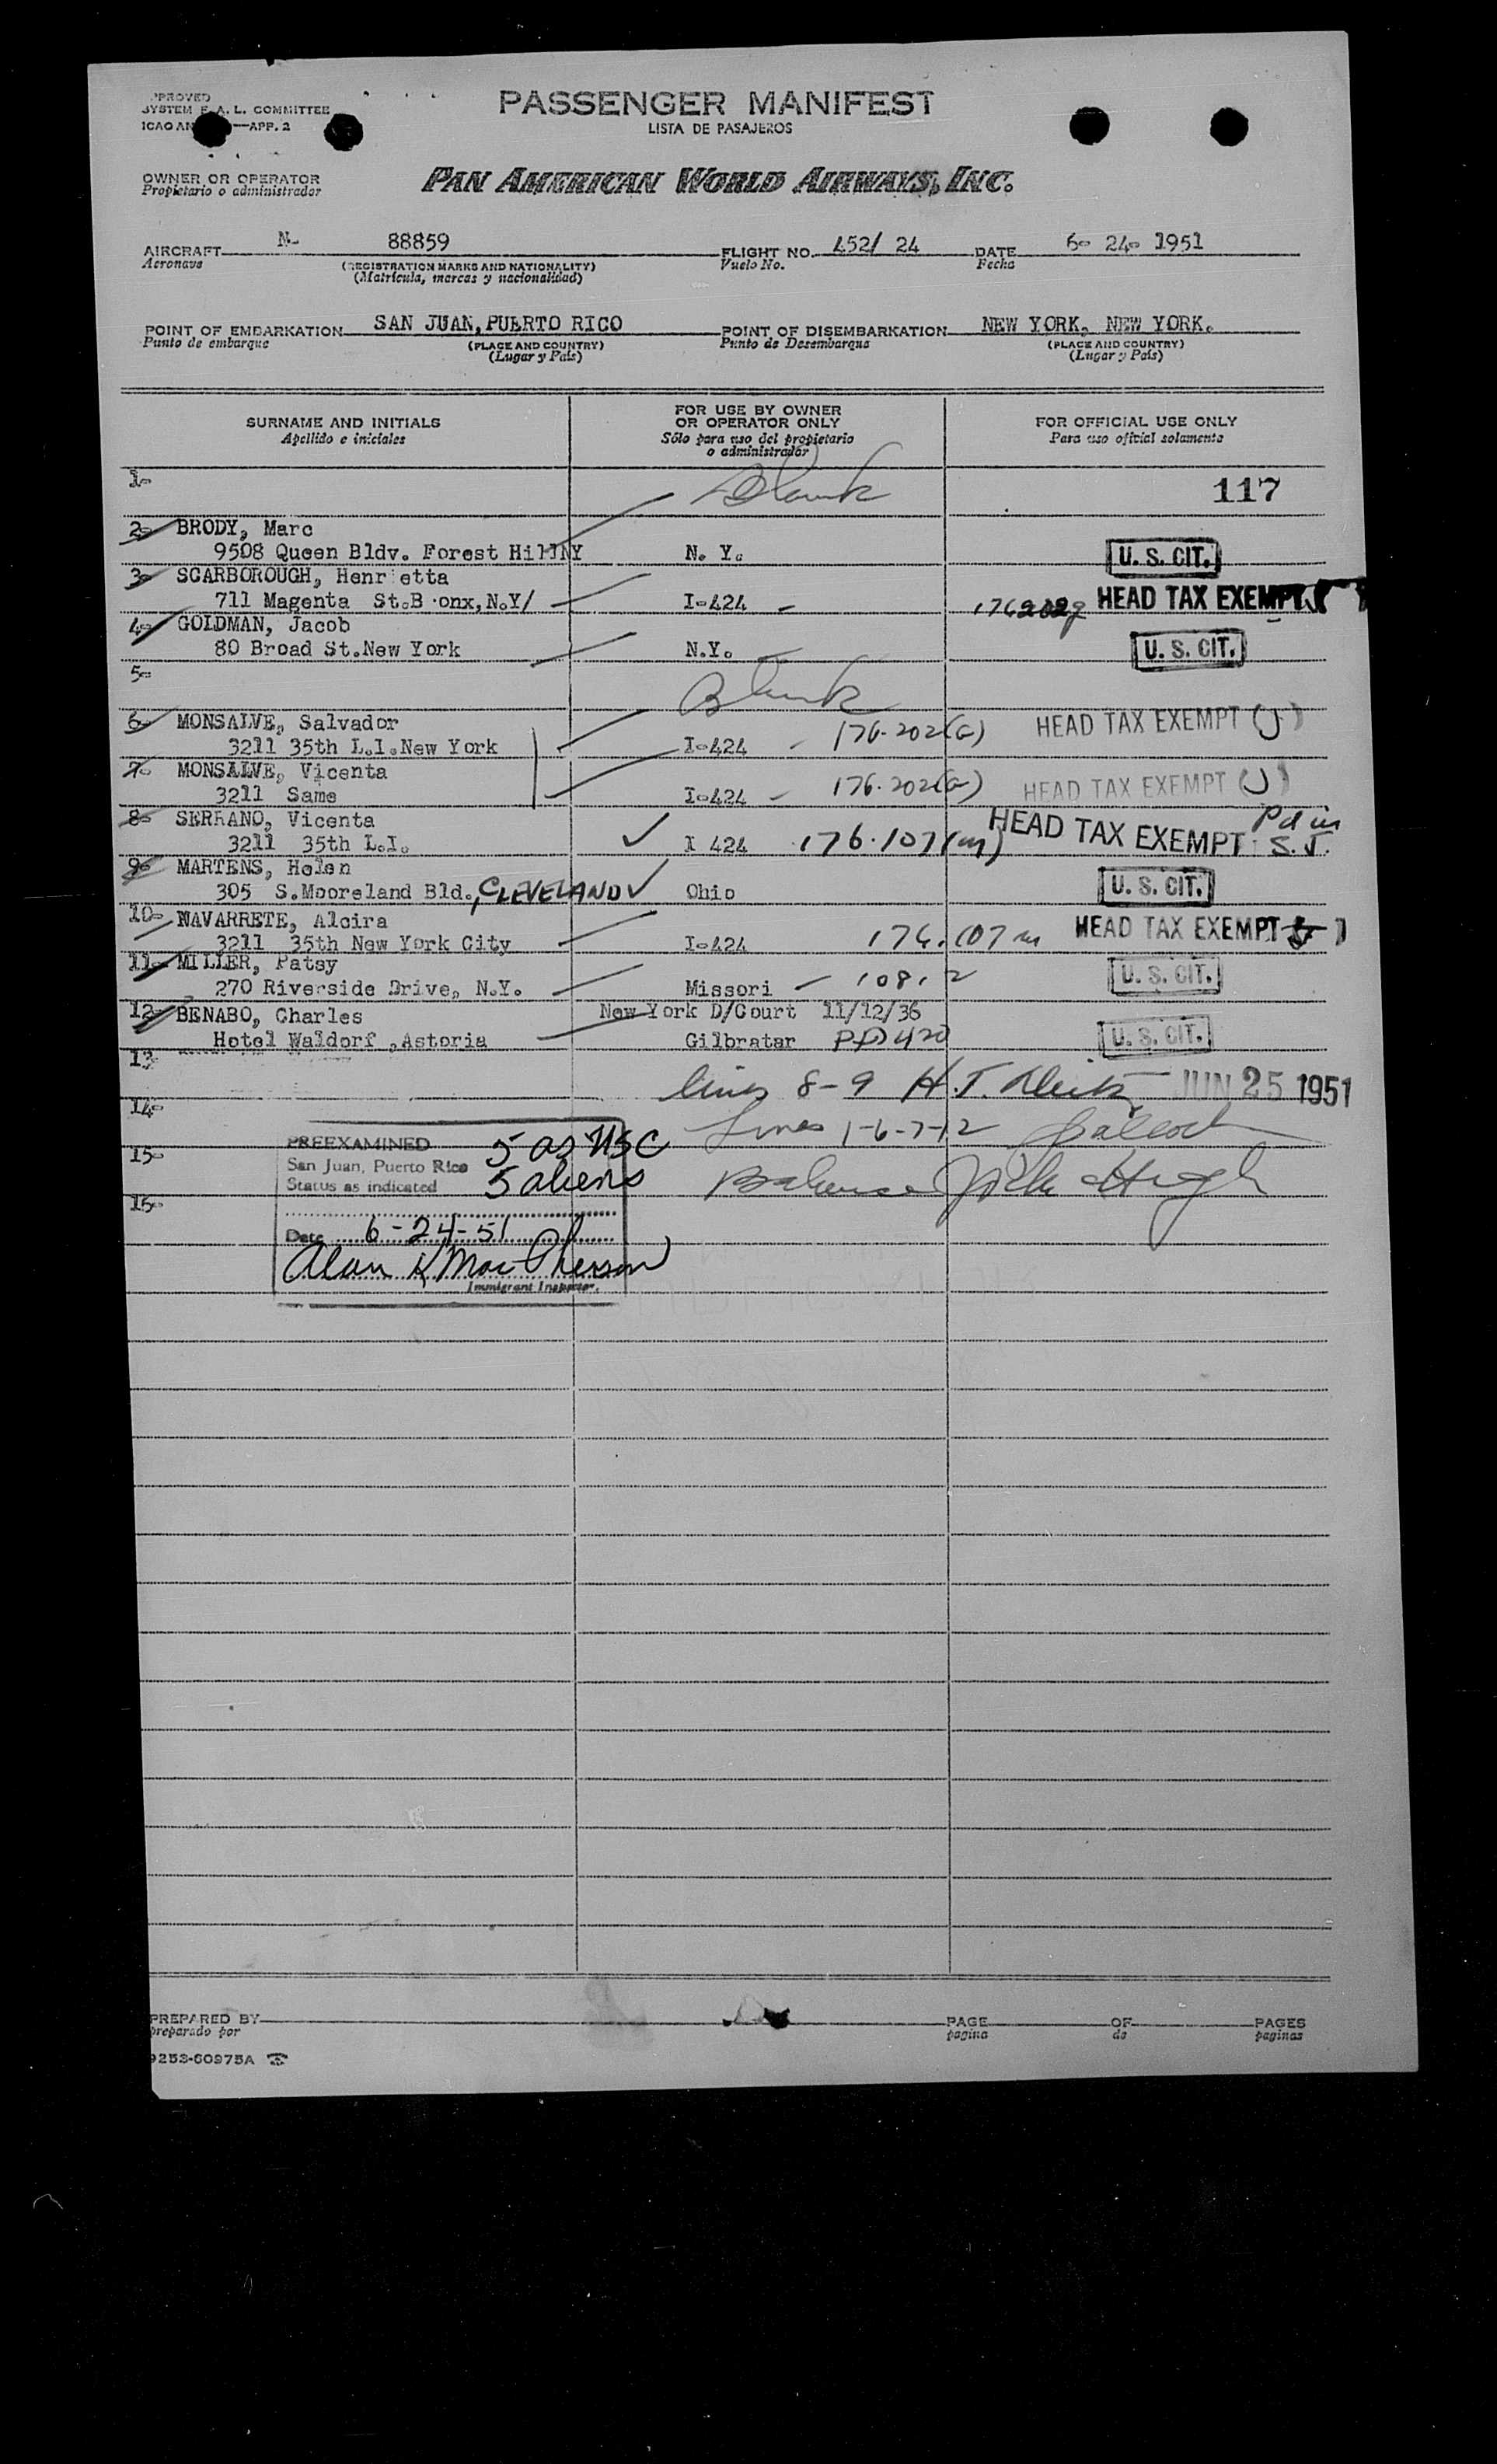 PASSENGER MANIFEST
LISTA DE PASAJEROS
APPROVED
SYSTEM F. A. L. COMMITTEE
ICAO AN —APP. 2
OWNER OR OPERATOR
Propietario o administrador
PAN AMERICAN WORLD AIRWAYS, INC.
AIRCRAFT N- 88859 FLIGHT NO. 452/ 24 DATE 6- 24- 1951
Aeronave (REGISTRATION MARKS AND NATIONALITY) Vuelo No. Fecha
(Matrícula, marcas y nacionalidad)
POINT OF EMBARKATION SAN JUAN, PUERTO RICO POINT OF DISEMBARKATION NEW YORK, NEW YORK.
Punto de embarque (PLACE AND COUNTRY) Punto de Desembarque (PLACE AND COUNTRY)
(Lugar y País) (Lugar y País)
SURNAME AND INITIALS FOR USE BY OWNER OR OPERATOR ONLY FOR OFFICIAL USE ONLY
Apellido e iniciales Sólo para uso del propietario o administrador Para uso oficial solamente
1- Blank 117
2- BRODY, Marc
9508 Queen Bldv. Forest HillNY N. Y. U. S. CIT.
3- SCARBOROUGH, Henrietta
711 Magenta St.B onx,N.Y/ I-424 - HEAD TAX EXEMPT
4- GOLDMAN, Jacob
80 Broad St.New York N.Y. U. S. CIT.
5- Blank
6- MONSALVE, Salvador
3211 35th L.I.New York I-424 - 176.202(G) HEAD TAX EXEMPT (J)
7- MONSALVE, Vicenta
3211 Same I-424 - 176.202(G) HEAD TAX EXEMPT (J)
8- SERRANO, Vicenta
3211 35th L.I. I 424 176.107(m) HEAD TAX EXEMPT Pd in S.J.
9- MARTENS, Helen
305 S.Mooreland Bld., CLEVELAND Ohio U. S. CIT.
10- NAVARRETE, Alcira
3211 35th New York City I-424 176.107 m HEAD TAX EXEMPT
11- MILLER, Patsy
270 Riverside Drive, N.Y. Missori - 108.2 U. S. CIT.
12- BENABO, Charles New York D/Court 11/12/36
Hotel Waldorf ,Astoria Gilbratar PP 420 U. S. CIT.
13-
lines 8-9 H.T. JUN 25 1951
14-
Lines 1-6-7-12
15-
16-
PREEXAMINED
San Juan, Puerto Rico 5 as USC
Status as indicated 5 aliens
Date 6-24-51
Alan K MacPherson
Immigrant Inspector.
PREPARED BY PAGE OF PAGES
preparado por pagina de paginas
9253-60975A